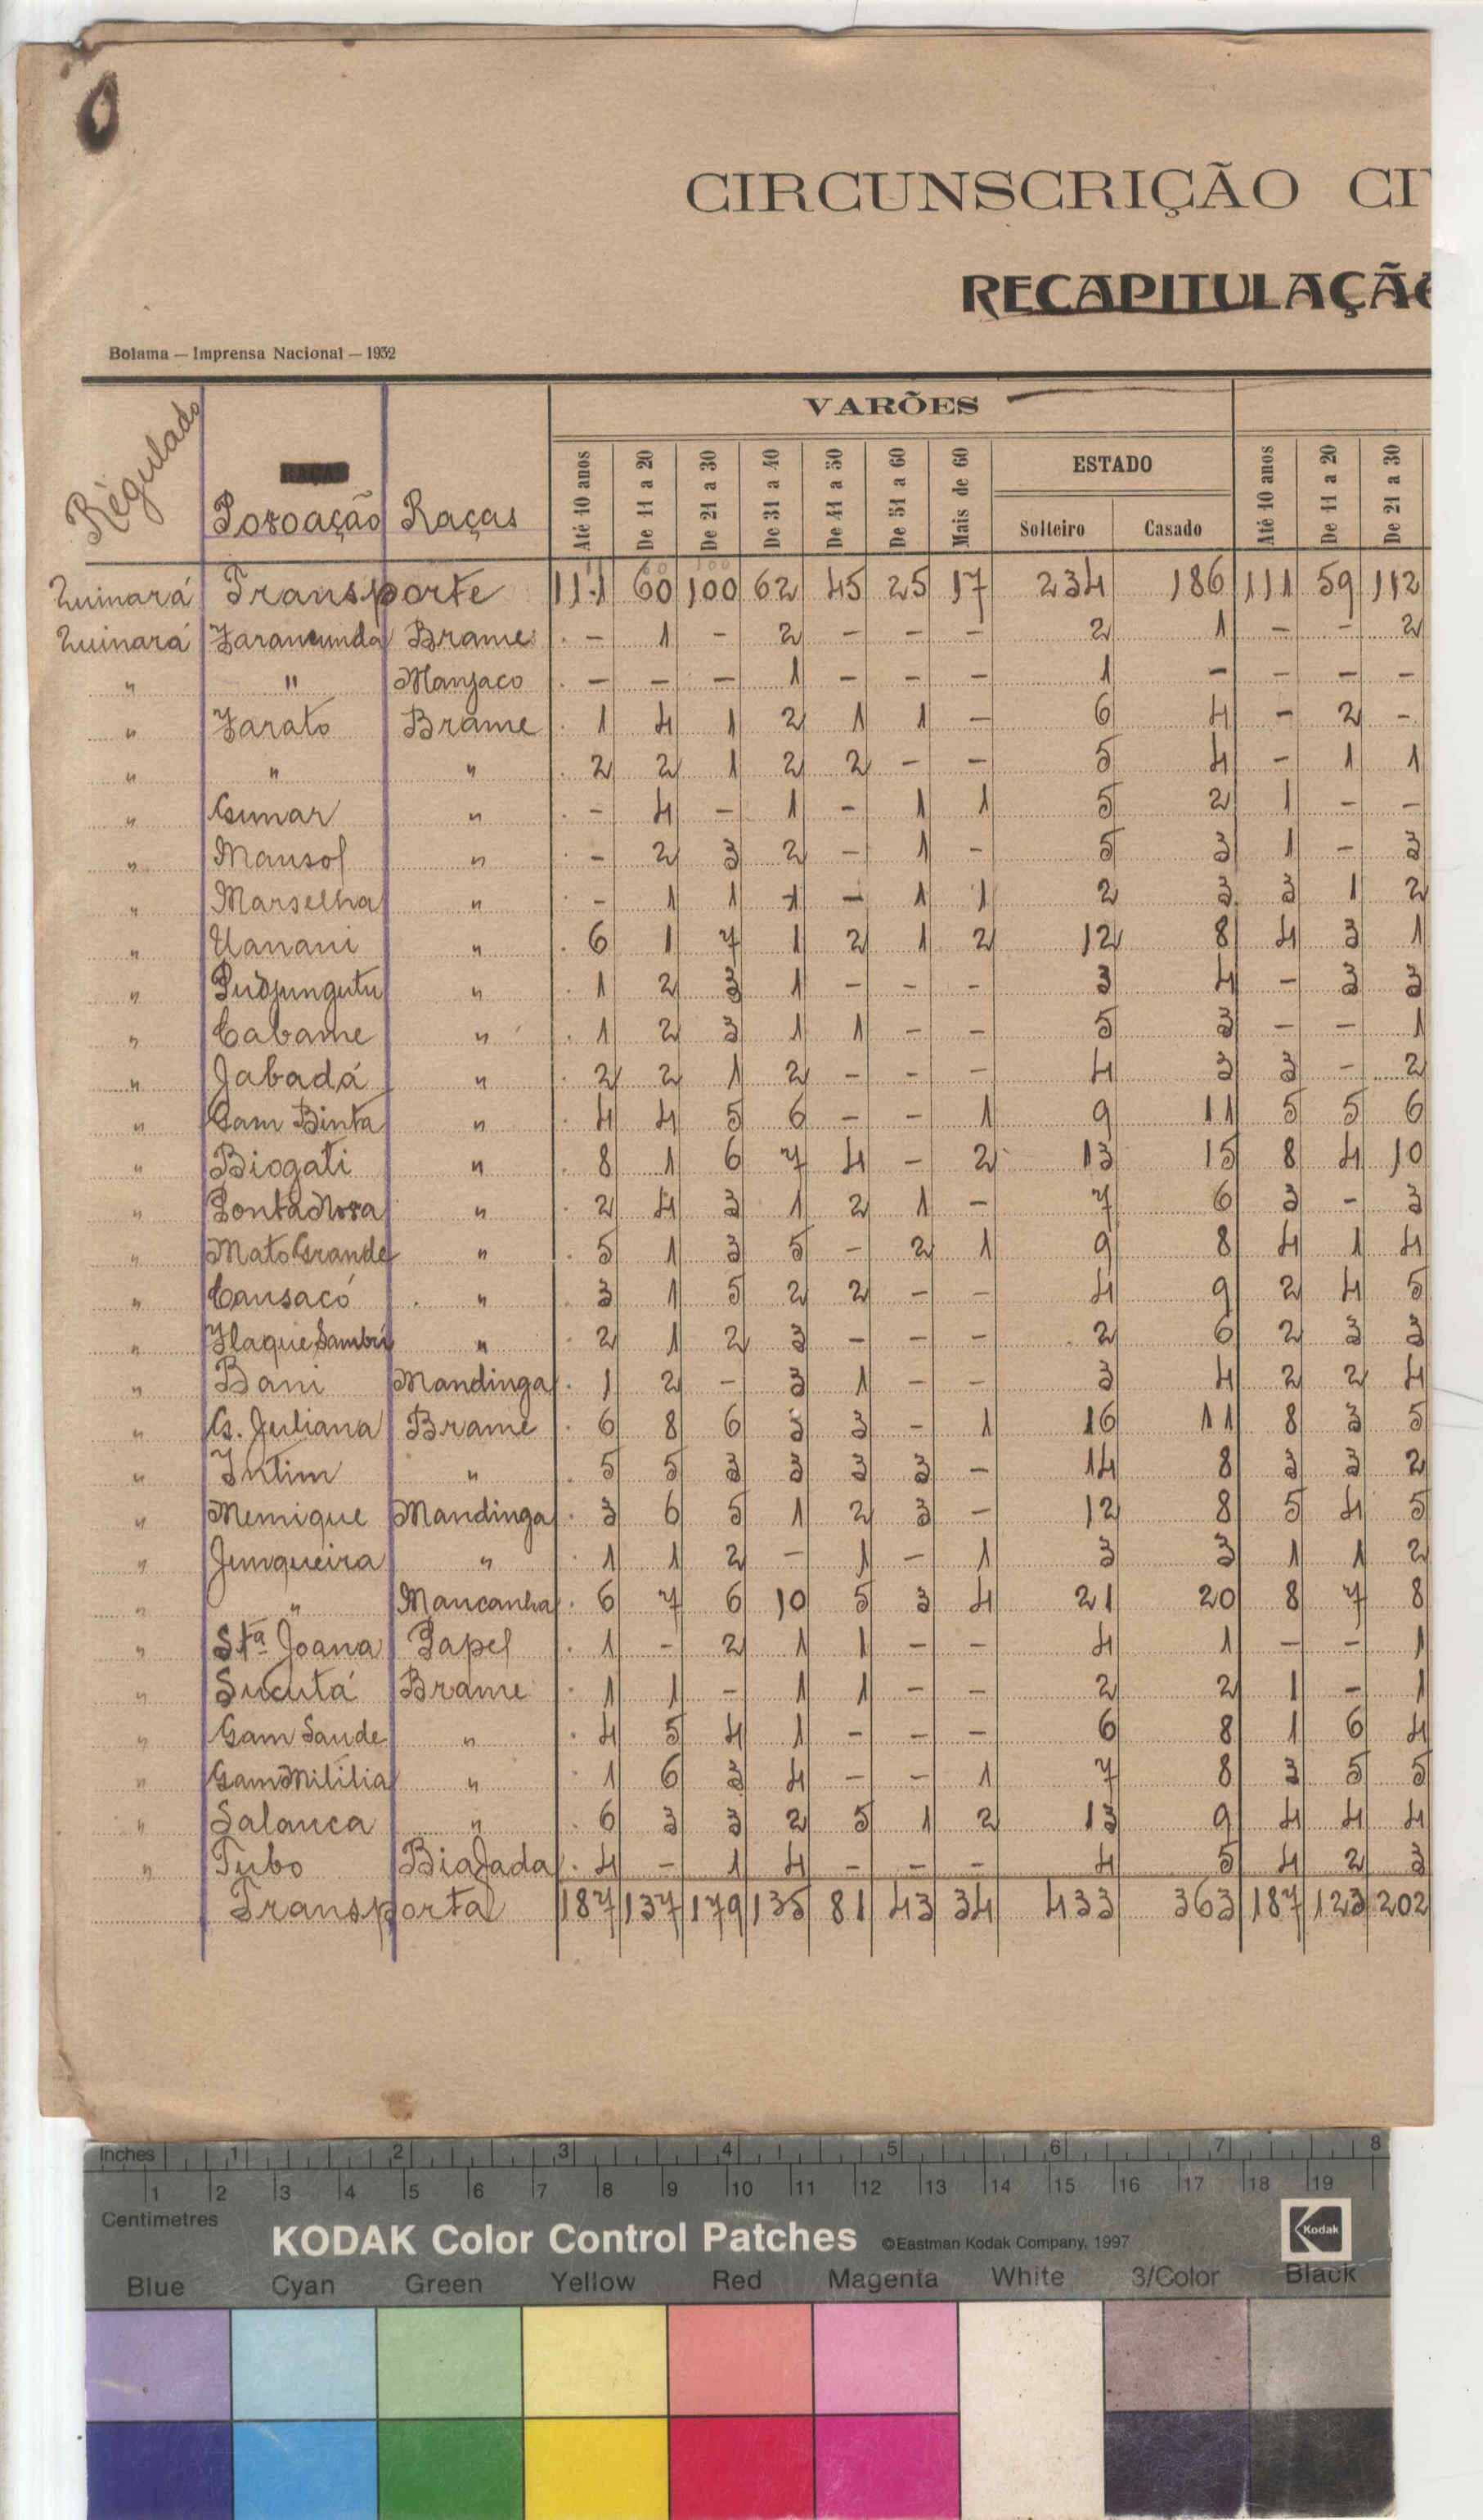 CIRCUNSCRIÇÃO CI
RECAPITULAÇÃ
Bolama — Imprensa Nacional — 1932
VARÕES
Régulado Povoação Raças Até 10 anos De 11 a 20 De 21 a 30 De 31 a 40 De 41 a 50 De 51 a 60 Mais de 60 ESTADO Solteiro Casado Até 10 anos De 11 a 20 De 21 a 30
Quinará Transporte 111 60 100 62 45 25 17 234 186 111 59 112
Quinará Brame - 1 - 2 - - - 2 1 - - 2
" " Manjaco - - - 1 - - - 1 - - - -
" Farato Brame 1 4 1 2 1 1 - 6 4 - 2 -
" " " 2 2 1 2 2 - - 5 4 - 1 1
" Gunar " - 4 - 1 - 1 1 5 2 1 - -
" Mansol " - 2 3 2 - 1 - 5 3 1 - 3
" Marselha " - 1 1 1 - 1 1 2 3 3 1 2
" Uanani " 6 1 7 1 2 1 2 12 8 4 3 1
" Pudjungutu " 1 2 3 1 - - - 3 4 - 3 3
" Cabame " 1 2 3 1 1 - - 5 3 - - 1
" Jabadá " 2 2 1 2 - - - 4 3 3 - 2
" Gam Binta " 4 4 5 6 - - 1 9 11 5 5 6
" Biogati " 8 1 6 7 4 - 2 13 15 8 4 10
" Ponta Nova " 2 4 3 1 2 1 - 7 6 3 - 3
" Mato Grande " 5 1 3 5 - 2 1 9 8 4 1 4
" Cansacó " 3 1 5 2 2 - - 4 9 2 4 5
" Flaque Sambú " 2 1 2 3 - - - 2 6 2 3 3
" Bani Mandinga 1 2 - 3 1 - - 3 4 2 2 4
" G. Juliana Brame 6 8 6 3 3 - 1 16 11 8 3 5
" Intim " 5 5 3 3 3 3 - 14 8 3 3 2
" Memique Mandinga 3 6 5 1 2 3 - 12 8 5 4 5
" Junqueira " 1 1 2 - 1 - 1 3 3 1 1 2
" " Mancanha 6 7 6 10 5 3 4 21 20 8 7 8
" Stª Joana Papel 1 - 2 1 1 - - 4 1 - - 1
" Sucutá Brame 1 1 - 1 1 - - 2 2 1 - 1
" Gam Saude " 4 5 4 1 - - - 6 8 1 6 4
" Gam Mililia " 1 6 3 4 - - 1 7 8 3 5 5
" Salanca " 6 3 3 2 5 1 2 13 9 4 4 4
" Tubo Biafada 4 - 1 4 - - - 4 5 4 2 3
Transporta 187 137 179 135 81 43 34 433 363 187 123 202
Inches 1 2 3 4 5 6 7 8
1 2 3 4 5 6 7 8 9 10 11 12 13 14 15 16 17 18 19
Centimetres
KODAK Color Control Patches ©Eastman Kodak Company, 1997 Kodak
Blue Cyan Green Yellow Red Magenta White 3/Color Black